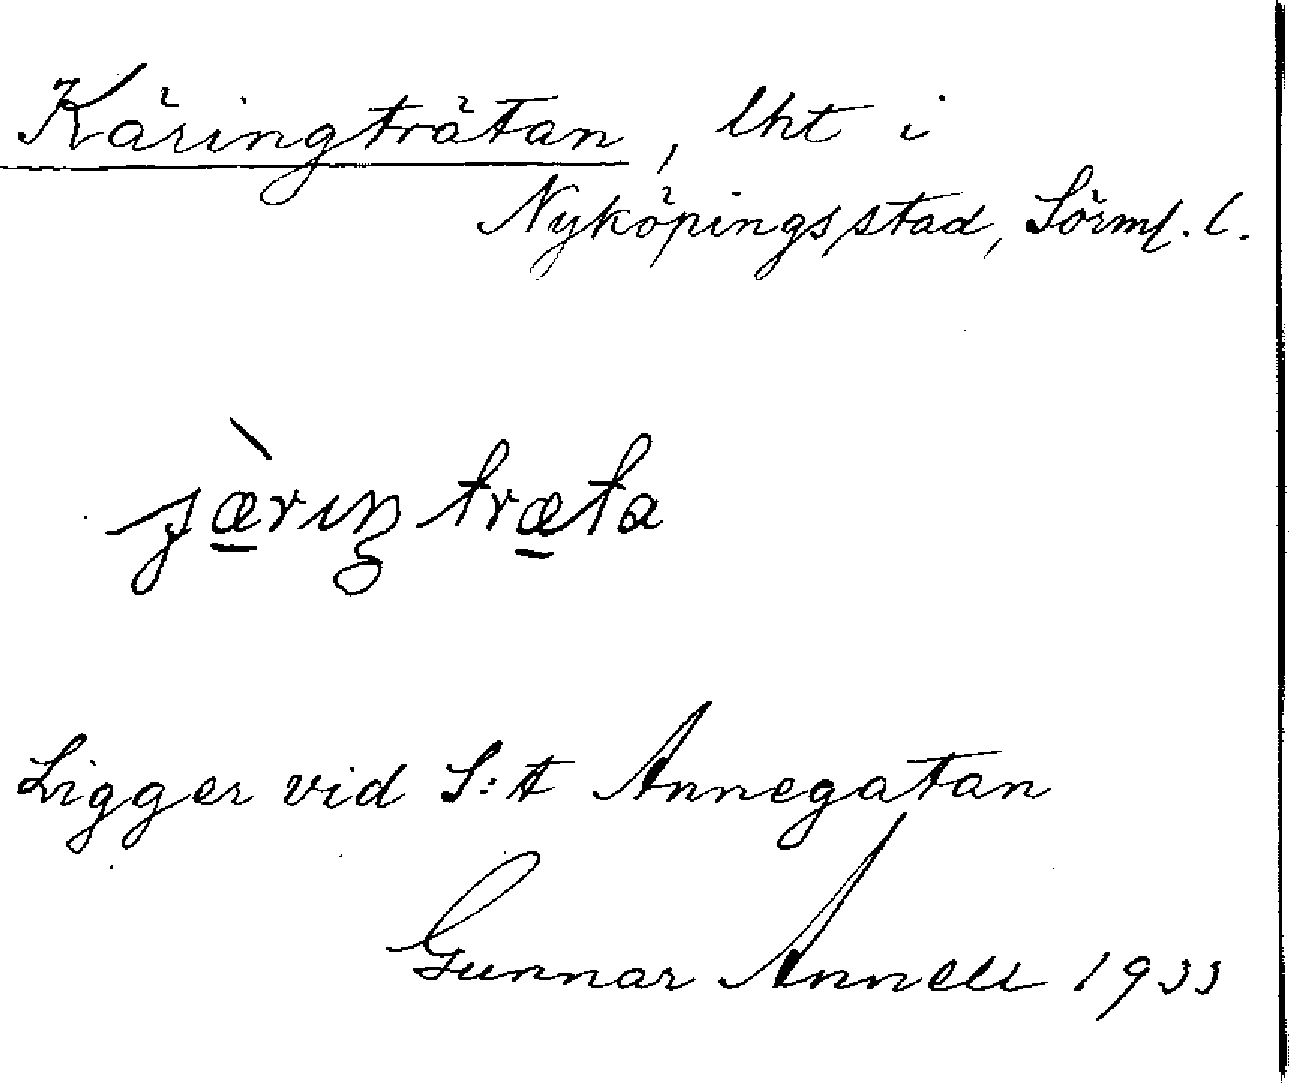 Käringträtan, lht i
Nyköpings stad, Sörml. l.
jæ̠̀riŋ træ̠ta
Ligger vid S:t Annegatan
Gunnar Annell 1933